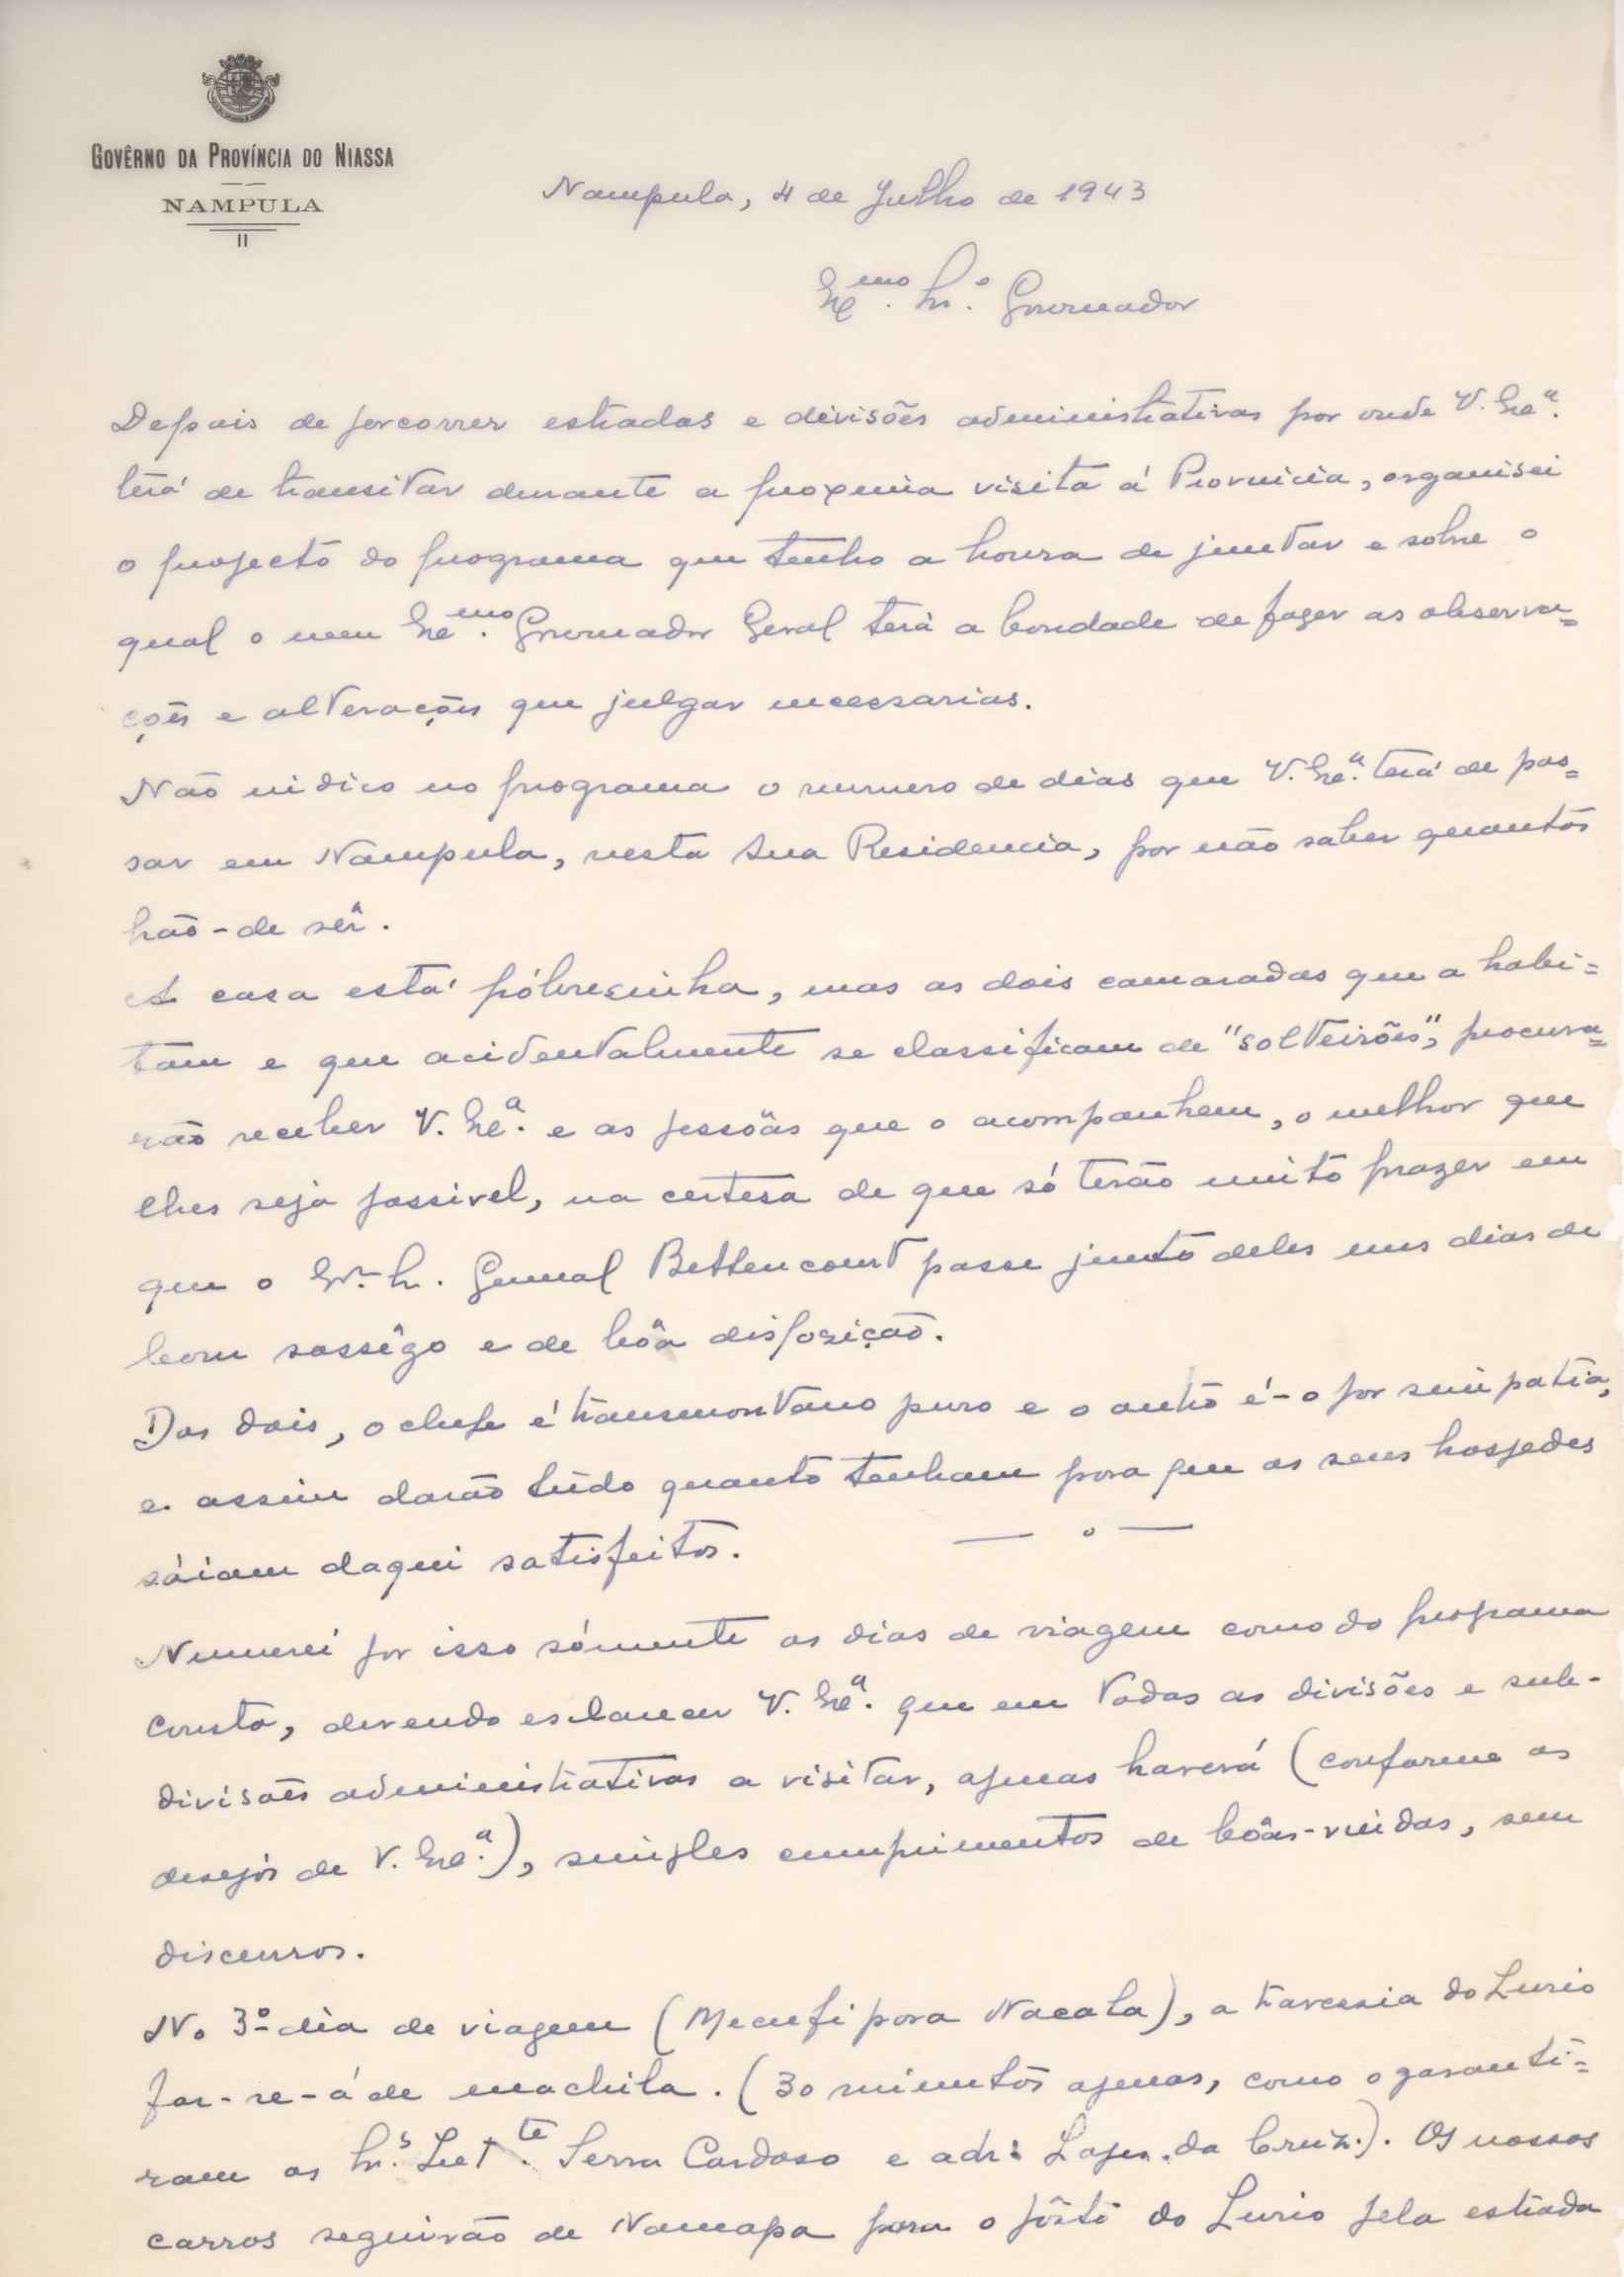 GOVÊRNO DA PROVÍNCIA DO NIASSA
NAMPULA
Nampula, 4 de Julho de 1943
Exmo. Snr. Governador
Depois de percorrer estradas e divisões administrativas por onde V. Exa.
terá de transitar durante a proxima visita á Provincia, organisei
o projecto do programa que tenho a honra de juntar e sobre o
qual o meu Exmo. Governador Geral terá a bondade de fazer as observa=
ções e alterações que julgar necessarias.
Não indico no programa o numero de dias que V. Exa. terá de pas=
sar em Nampula, nesta sua Residencia, por não saber quantos
hão-de sêr.
A casa está póbresinha, mas os dois camaradas que a habi=
tam e que acidentalmente se classificam de "solteirões", procura=
rão receber V. Exa. e as pessôas que o acompanhem, o melhor que
lhes seja possivel, na certesa de que só terão muito prazer em
que o Snr. General Bettencourt passe junto deles uns dias de
bom sossêgo e de bôa disposição.
Dos dois, o chefe é transmontano puro e o outro é-o por simpatia,
e assim darão tudo quanto tenham para que os seus hospedes
sáiam daqui satisfeitos. — o —
Numerei por isso sómente os dias de viagem como do programa
consta, devendo esclarecer V. Exa. que em todas as divisões e sub-
divisões administrativas a visitar, apenas haverá (conforme os
desejos de V. Exa.), simples cumprimentos de bôas-vindas, sem
discursos.
No 3º dia de viagem (Mecufi para Nacala), a travessia do Lurio
far-se-á de machila. (30 minutos apenas, como o garanti=
ram os Snrs. Serra Cardoso e adr. Lopes da Cruz.). Os nossos
carros seguirão de Namapa para o pôsto do Lurio pela estrada